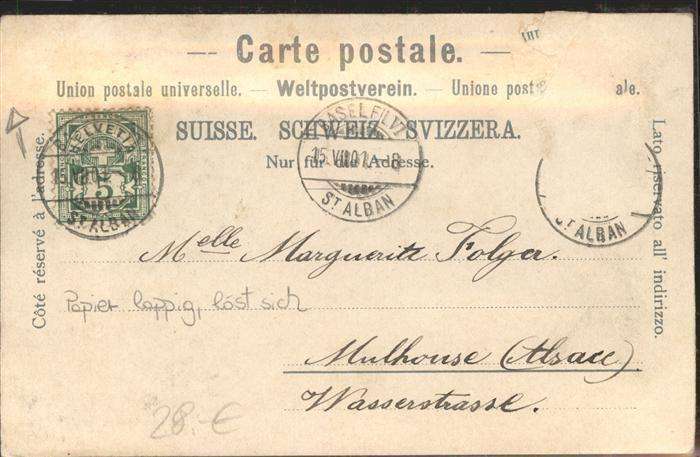 — Carte postale. —
Union postale universelle. — Weltpostverein. — Unione post ale.
SUISSE. SCHWEIZ. SVIZZERA.
Nur für die Adresse.
HELVETIA
5
15.VII.01
ST ALBAN
15.VII.01. -8
ST ALBAN
ST ALBAN
Côté réservé à l'adresse.
Lato riservato all' indirizzo.
Melle Marguerite Folger.
Papier lappig, löst sich
Mulhouse (Alsace)
Wasserstrasse.
28.-€